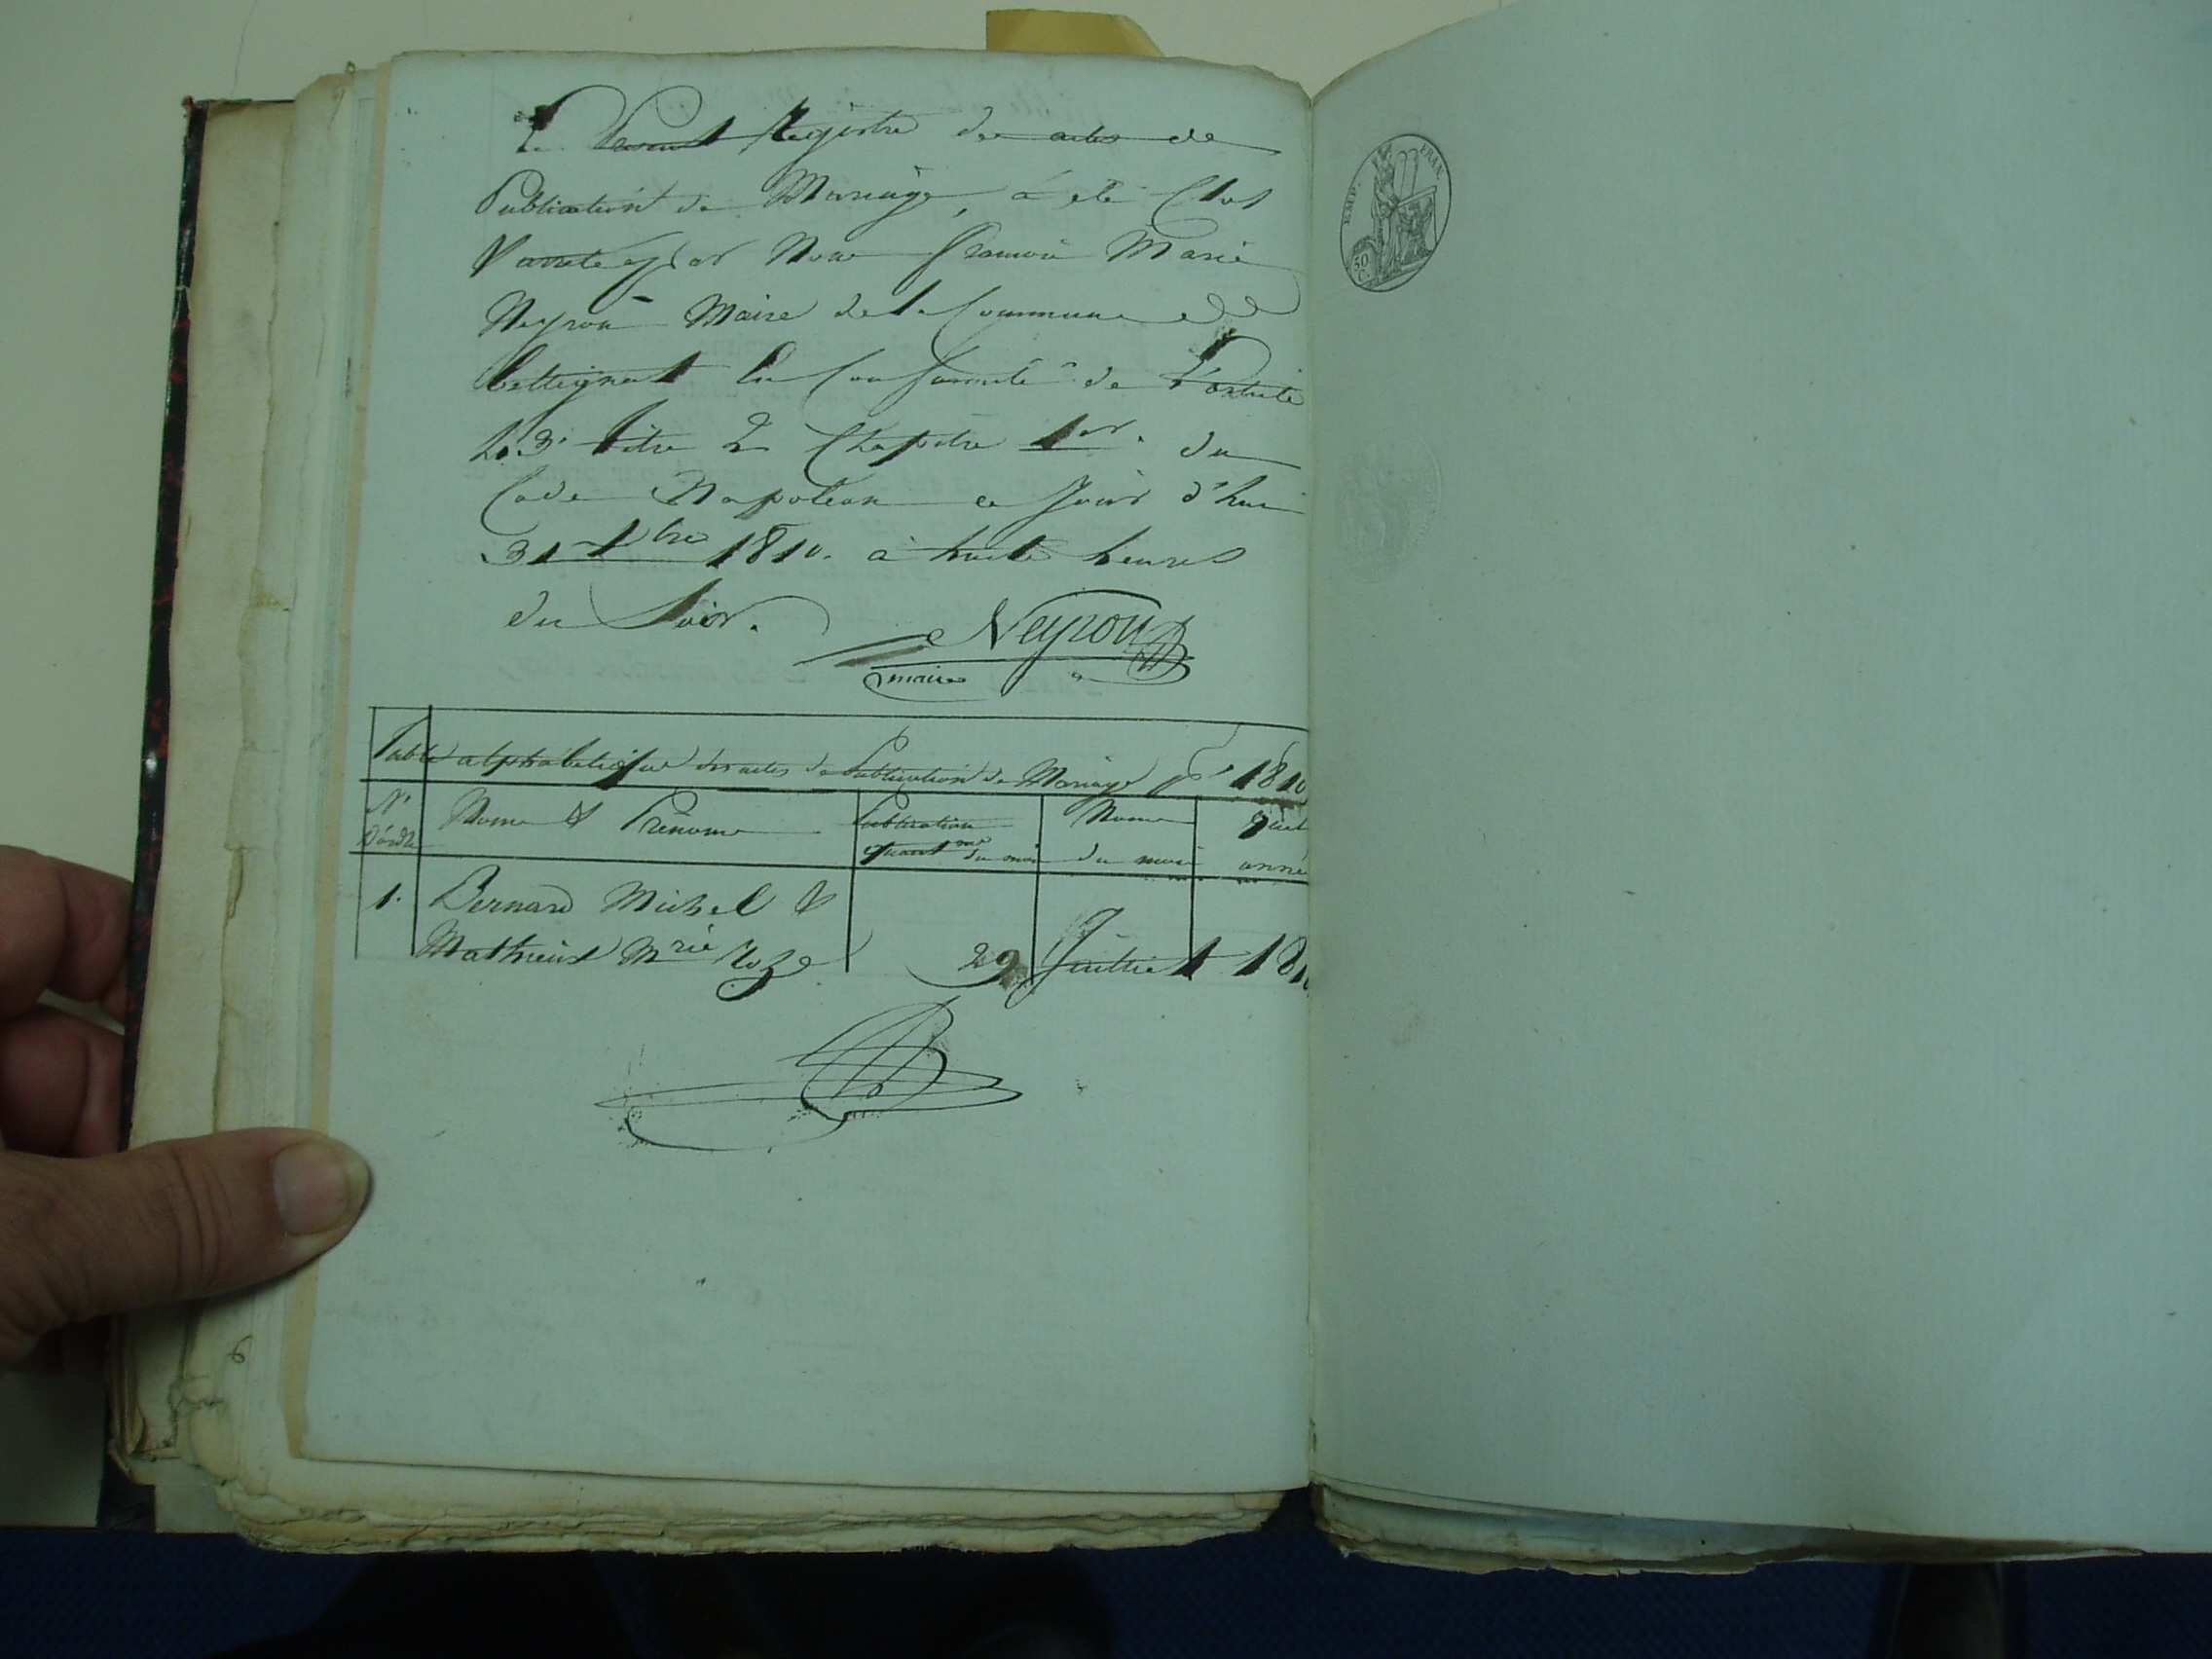 Le Present Registre des actes de
Publication de Mariage, a été Clos
& arreté par Nous François Marie
Neyron Maire de la Commune de
Bettignat En Conformité de l'article
43 titre 2 Chapitre 1er. du
Code Napoléon ce Jour d'hui
31 Xbre 1810. à huite heures
du Soir.
Neyron
maire
Table alphabetique des actes de Publication de Mariage pr 1810
No D'ordre
Noms & Prénoms
Publication quantme du mois
Noms du mois
année
1. Bernard Michel &
Mathieux Mrie Roze 29 Juillet 1810
EMP. FRAN.
50 C.
6